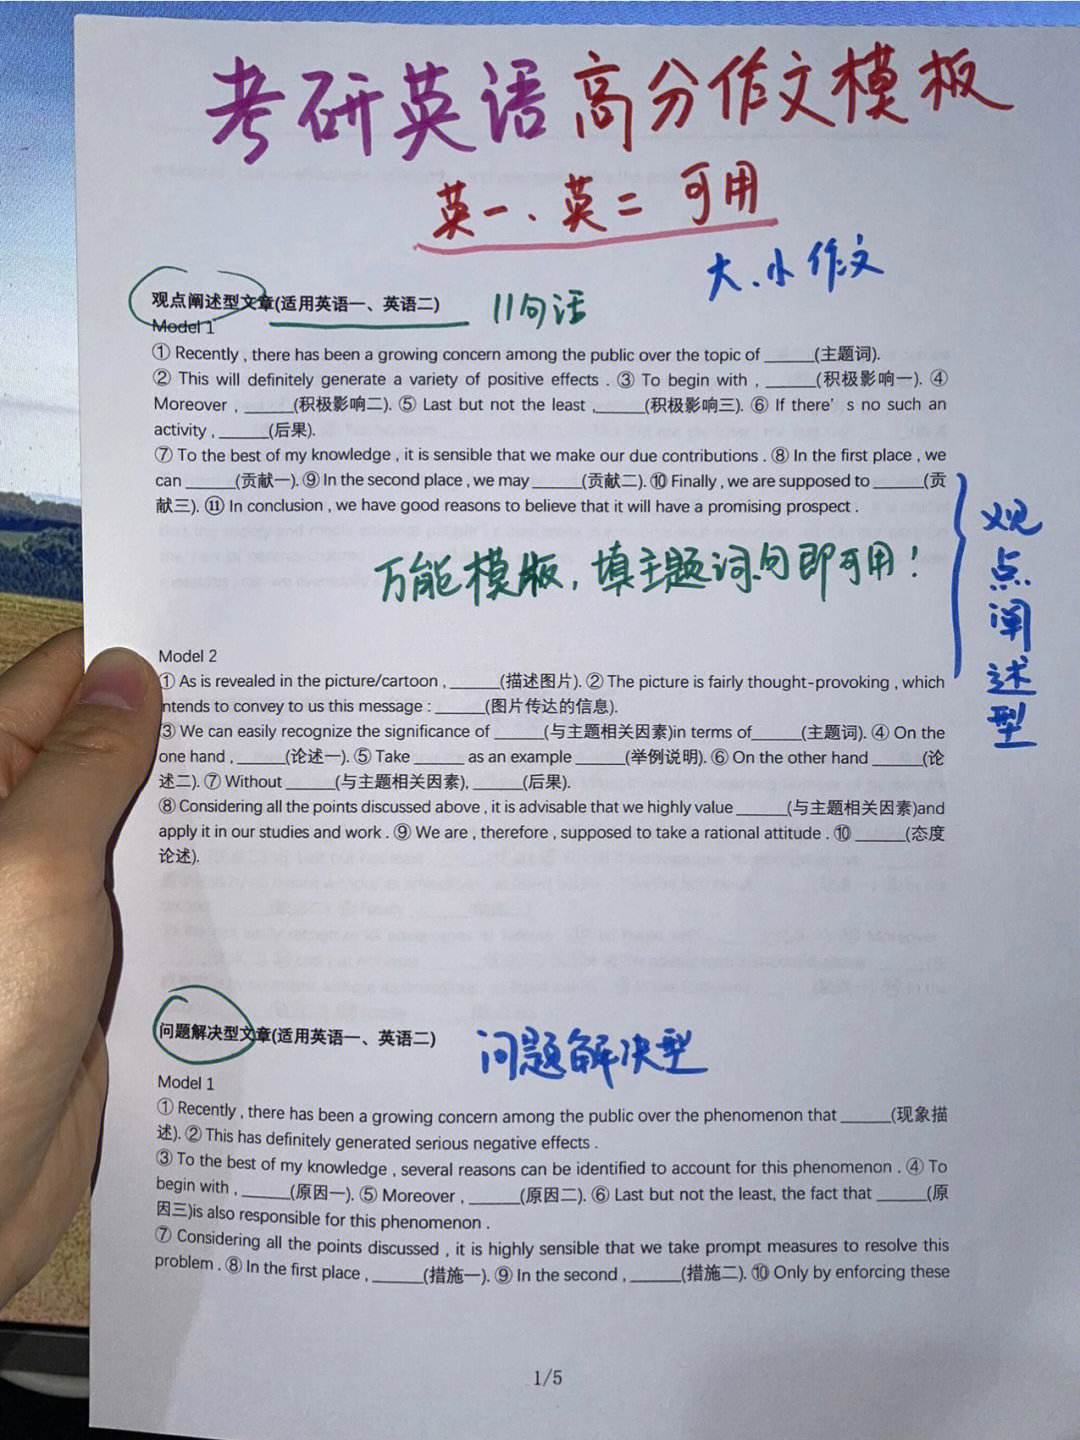 考研英语高分作文模板
英一、英二 可用
大、小作文
观点阐述型文章(适用英语一、英语二)
11句话
Model 1
① Recently , there has been a growing concern among the public over the topic of ______(主题词).
② This will definitely generate a variety of positive effects . ③ To begin with , ______(积极影响一). ④
Moreover , ______(积极影响二). ⑤ Last but not the least ,______(积极影响三). ⑥ If there’s no such an
activity , ______(后果).
⑦ To the best of my knowledge , it is sensible that we make our due contributions . ⑧ In the first place , we
can ______(贡献一). ⑨ In the second place , we may ______(贡献二). ⑩ Finally , we are supposed to ______(贡
献三). ⑪ In conclusion , we have good reasons to believe that it will have a promising prospect .
万能模版，填主题词句即可用！
观点阐述型
Model 2
① As is revealed in the picture/cartoon , ______(描述图片). ② The picture is fairly thought-provoking , which
ntends to convey to us this message : ______(图片传达的信息).
③ We can easily recognize the significance of ______(与主题相关因素)in terms of______(主题词). ④ On the
one hand , ______(论述一). ⑤ Take ______ as an example ______(举例说明). ⑥ On the other hand ______(论
述二). ⑦ Without ______(与主题相关因素), ______(后果).
⑧ Considering all the points discussed above , it is advisable that we highly value ______(与主题相关因素)and
apply it in our studies and work . ⑨ We are , therefore , supposed to take a rational attitude . ⑩ ______(态度
论述).
问题解决型文章(适用英语一、英语二)
问题解决型
Model 1
① Recently , there has been a growing concern among the public over the phenomenon that ______(现象描
述). ② This has definitely generated serious negative effects .
③ To the best of my knowledge , several reasons can be identified to account for this phenomenon . ④ To
begin with , ______(原因一). ⑤ Moreover , ______(原因二). ⑥ Last but not the least, the fact that ______(原
因三)is also responsible for this phenomenon .
⑦ Considering all the points discussed , it is highly sensible that we take prompt measures to resolve this
problem . ⑧ In the first place , ______(措施一). ⑨ In the second , ______(措施二). ⑩ Only by enforcing these
1/5